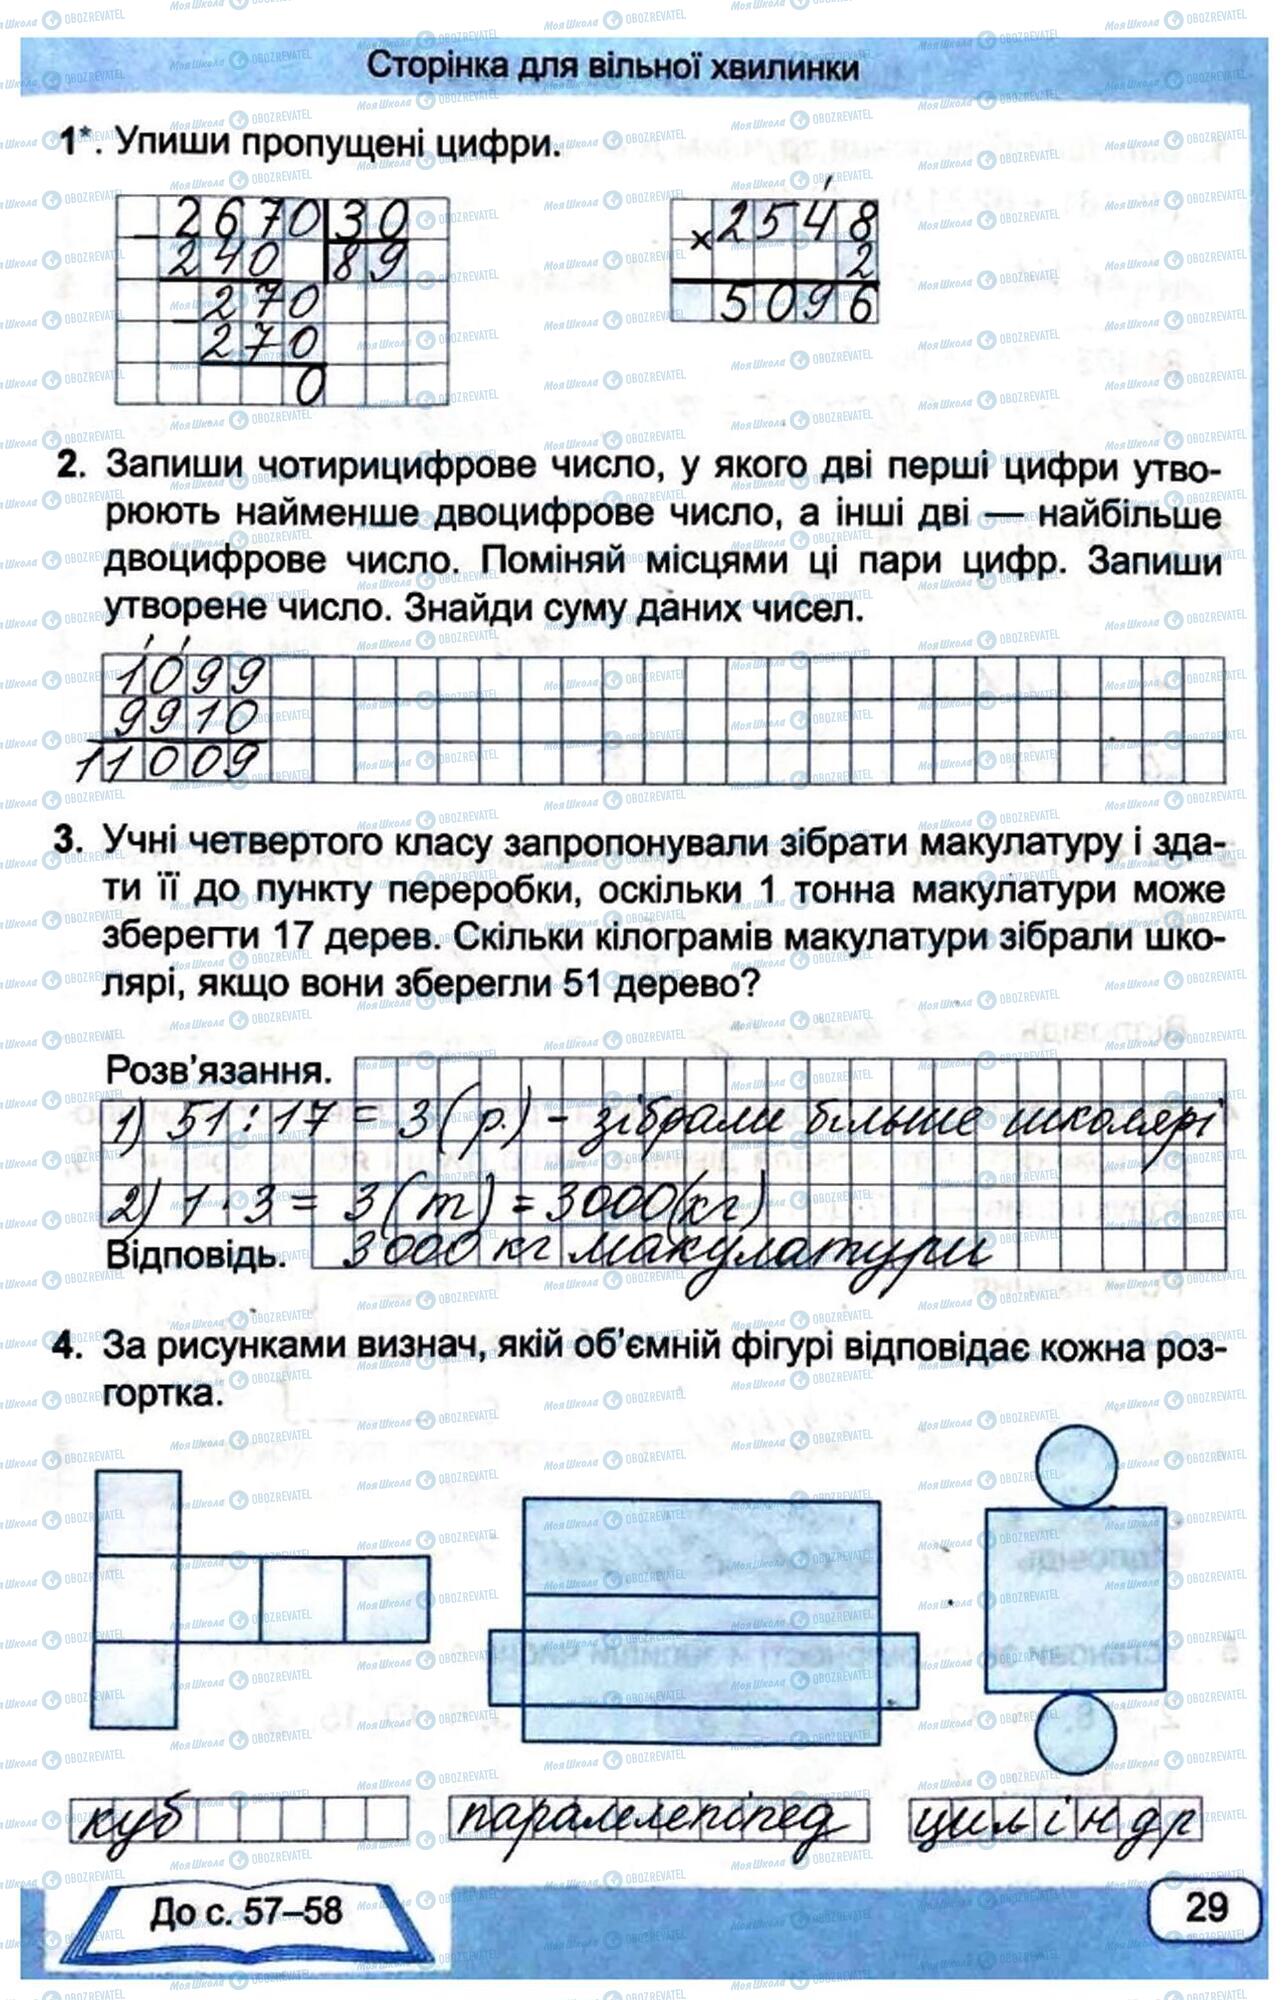 Сторінка для вільної хвилинки
1*. Упиши пропущені цифри.
2670 30
240 89
270
270
0
2548
× 2
5096
2. Запиши чотирицифрове число, у якого дві перші цифри утво-
рюють найменше двоцифрове число, а інші дві — найбільше
двоцифрове число. Поміняй місцями ці пари цифр. Запиши
утворене число. Знайди суму даних чисел.
1099
9910
11009
3. Учні четвертого класу запропонували зібрати макулатуру і зда-
ти її до пункту переробки, оскільки 1 тонна макулатури може
зберегти 17 дерев. Скільки кілограмів макулатури зібрали шко-
лярі, якщо вони зберегли 51 дерево?
Розв'язання.
1) 51 : 17 = 3 (р.) - зібрали більше школярі
2) 1 · 3 = 3 (т) = 3000 (кг)
Відповідь. 3000 кг макулатури
4. За рисунками визнач, якій об'ємній фігурі відповідає кожна роз-
гортка.
куб паралелепіпед циліндр
До с. 57–58
29
МояШкола OBOZREVATEL